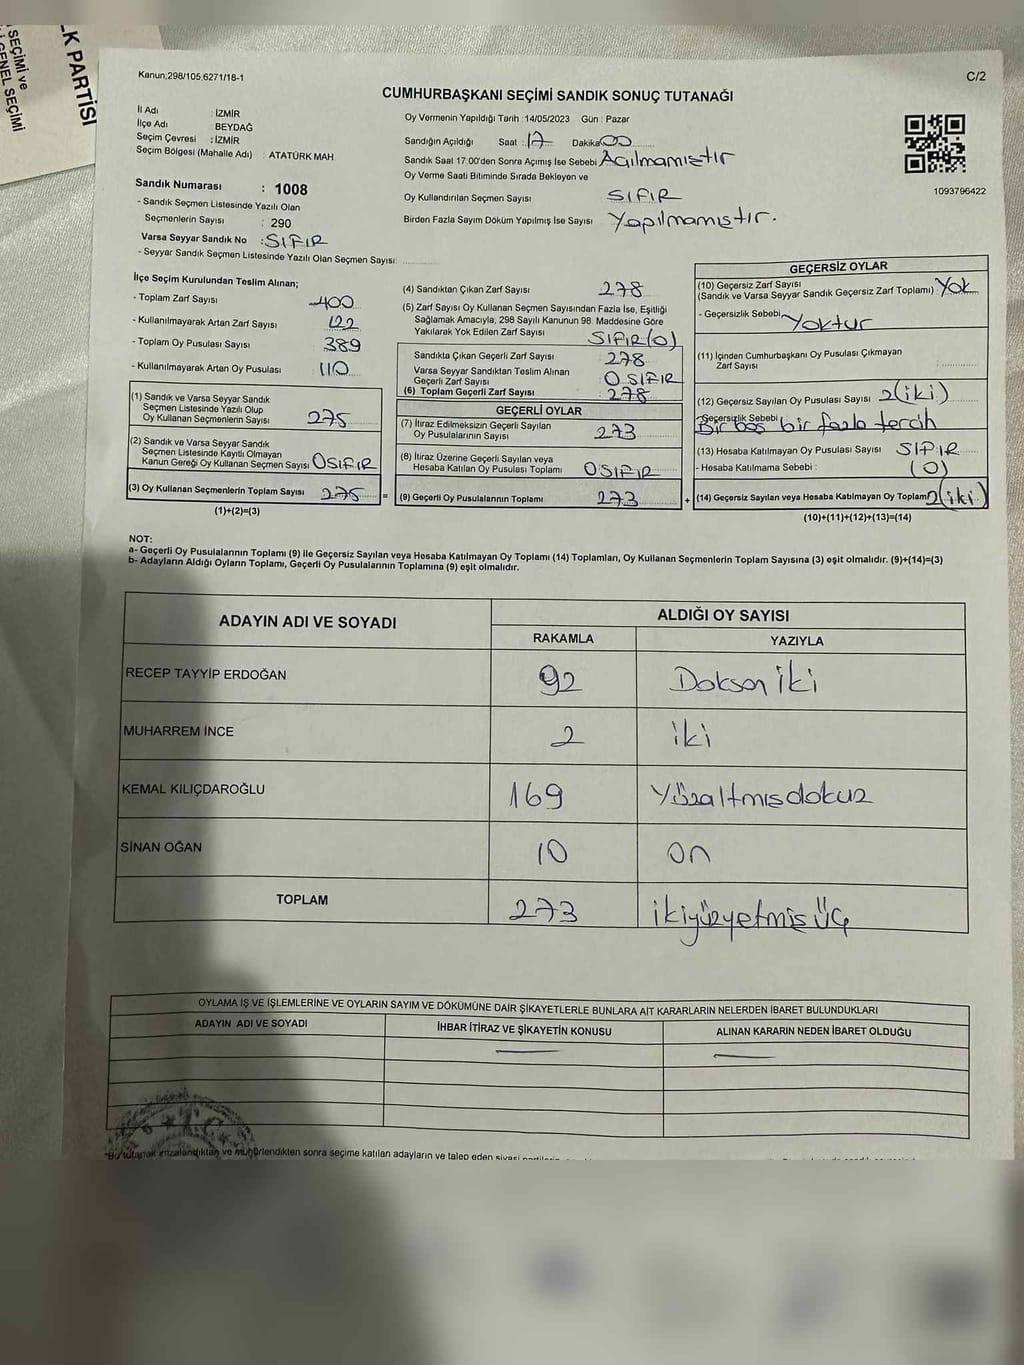 LK PARTİSİ
SEÇİMİ ve
GENEL SEÇİMİ
Kanun;298/105,6271/18-1
C/2
CUMHURBAŞKANI SEÇİMİ SANDIK SONUÇ TUTANAĞI
İl Adı : İZMİR
İlçe Adı : BEYDAĞ
Seçim Çevresi : İZMİR
Seçim Bölgesi (Mahalle Adı) : ATATÜRK MAH.
Oy Vermenin Yapıldığı Tarih :14/05/2023 Gün : Pazar
Sandığın Açıldığı Saat : 17 Dakika 00
Sandık Saat 17:00'den Sonra Açımış İse Sebebi Açılmamıştır
Oy Verme Saati Bitiminde Sırada Bekleyen ve
Oy Kullandırılan Seçmen Sayısı SIFIR
Birden Fazla Sayım Döküm Yapılmış İse Sayısı Yapılmamıştır.
1093796422
Sandık Numarası : 1008
- Sandık Seçmen Listesinde Yazılı Olan
Seçmenlerin Sayısı : 290
Varsa Seyyar Sandık No : SIFIR
- Seyyar Sandık Seçmen Listesinde Yazılı Olan Seçmen Sayısı:
İlçe Seçim Kurulundan Teslim Alınan;
- Toplam Zarf Sayısı 400
- Kullanılmayarak Artan Zarf Sayısı 122
- Toplam Oy Pusulası Sayısı 389
- Kullanılmayarak Artan Oy Pusulası 110
(1) Sandık ve Varsa Seyyar Sandık
Seçmen Listesinde Yazılı Olup
Oy Kullanan Seçmenlerin Sayısı 275
(2) Sandık ve Varsa Seyyar Sandık
Seçmen Listesinde Kayıtlı Olmayan
Kanun Gereği Oy Kullanan Seçmen Sayısı 0SIFIR
(3) Oy Kullanan Seçmenlerin Toplam Sayısı 275 =
(1)+(2)=(3)
(4) Sandıktan Çıkan Zarf Sayısı 278
(5) Zarf Sayısı Oy Kullanan Seçmen Sayısından Fazla İse, Eşitliği
Sağlamak Amacıyla, 298 Sayılı Kanunun 98. Maddesine Göre
Yakılarak Yok Edilen Zarf Sayısı SIFIR(0)
Sandıkta Çıkan Geçerli Zarf Sayısı 278
Varsa Seyyar Sandıktan Teslim Alınan
Geçerli Zarf Sayısı 0 SIFIR
(6) Toplam Geçerli Zarf Sayısı 278
GEÇERLİ OYLAR
(7) İtiraz Edilmeksizin Geçerli Sayılan
Oy Pusulalarının Sayısı 273
(8) İtiraz Üzerine Geçerli Sayılan veya
Hesaba Katılan Oy Pusulası Toplamı 0SIFIR
(9) Geçerli Oy Pusulalarının Toplamı 273 +
GEÇERSİZ OYLAR
(10) Geçersiz Zarf Sayısı
(Sandık ve Varsa Seyyar Sandık Geçersiz Zarf Toplamı) : Yok
- Geçersizlik Sebebi Yoktur
(11) İçinden Cumhurbaşkanı Oy Pusulası Çıkmayan
Zarf Sayısı :
(12) Geçersiz Sayılan Oy Pusulası Sayısı 2(iki)
- Geçersizlik Sebebi
Bir boş bir fazla tercih
(13) Hesaba Katılmayan Oy Pusulası Sayısı SIFIR
- Hesaba Katılmama Sebebi : (0)
(14) Geçersiz Sayılan veya Hesaba Katılmayan Oy Toplamı 2(iki)
(10)+(11)+(12)+(13)=(14)
NOT:
a- Geçerli Oy Pusulalarının Toplamı (9) ile Geçersiz Sayılan veya Hesaba Katılmayan Oy Toplamı (14) Toplamları, Oy Kullanan Seçmenlerin Toplam Sayısına (3) eşit olmalıdır. (9)+(14)=(3)
b- Adayların Aldığı Oyların Toplamı, Geçerli Oy Pusulalarının Toplamına (9) eşit olmalıdır.
ADAYIN ADI VE SOYADI
ALDIĞI OY SAYISI
RAKAMLA YAZIYLA
RECEP TAYYİP ERDOĞAN 92 Doksan iki
MUHARREM İNCE 2 iki
KEMAL KILIÇDAROĞLU 169 Yüzaltmışdokuz
SİNAN OĞAN 10 on
TOPLAM 273 ikiyüzyetmiş üç
OYLAMA İŞ VE İŞLEMLERİNE VE OYLARIN SAYIM VE DÖKÜMÜNE DAİR ŞİKAYETLERLE BUNLARA AİT KARARLARIN NELERDEN İBARET BULUNDUKLARI
ADAYIN ADI VE SOYADI İHBAR İTİRAZ VE ŞİKAYETİN KONUSU ALINAN KARARIN NEDEN İBARET OLDUĞU
T.C.
*Bu tutanak imzalandıktan ve mühürlendikten sonra seçime katılan adayların ve talep eden siyasi